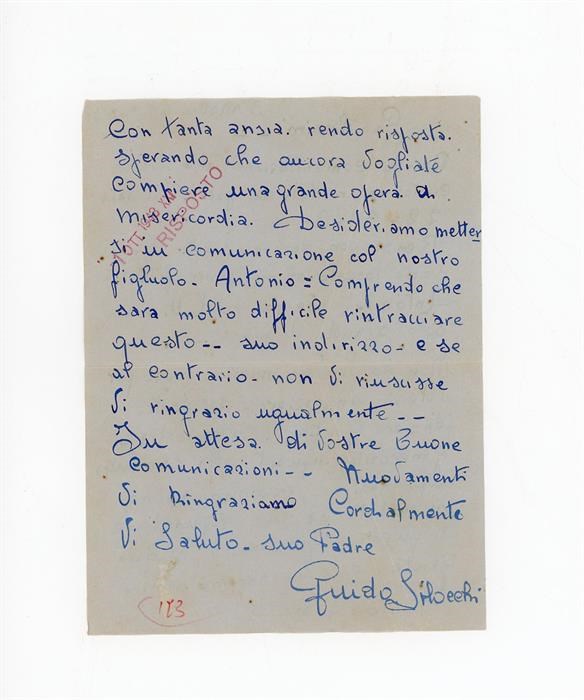 Con tanta ansia. rendo risposta.
sperando che ancora Vogliate
compiere una grande opera di
misericordia. Desideriamo metter
si in comunicazione col' nostro
figluolo. Antonio = Comprendo che
sara molto difficile rintracciare
questo -- suo indirizzo - e se
al contrario - non Vi riuscisse
Vi ringrazio ugualmente --
In attesa di Vostre Buone
comunicazioni -- Nuovamenti
Vi Ringraziamo Cordialmente
Vi Saluto - suo Padre
Guido
OTT
RISPOSTO
173